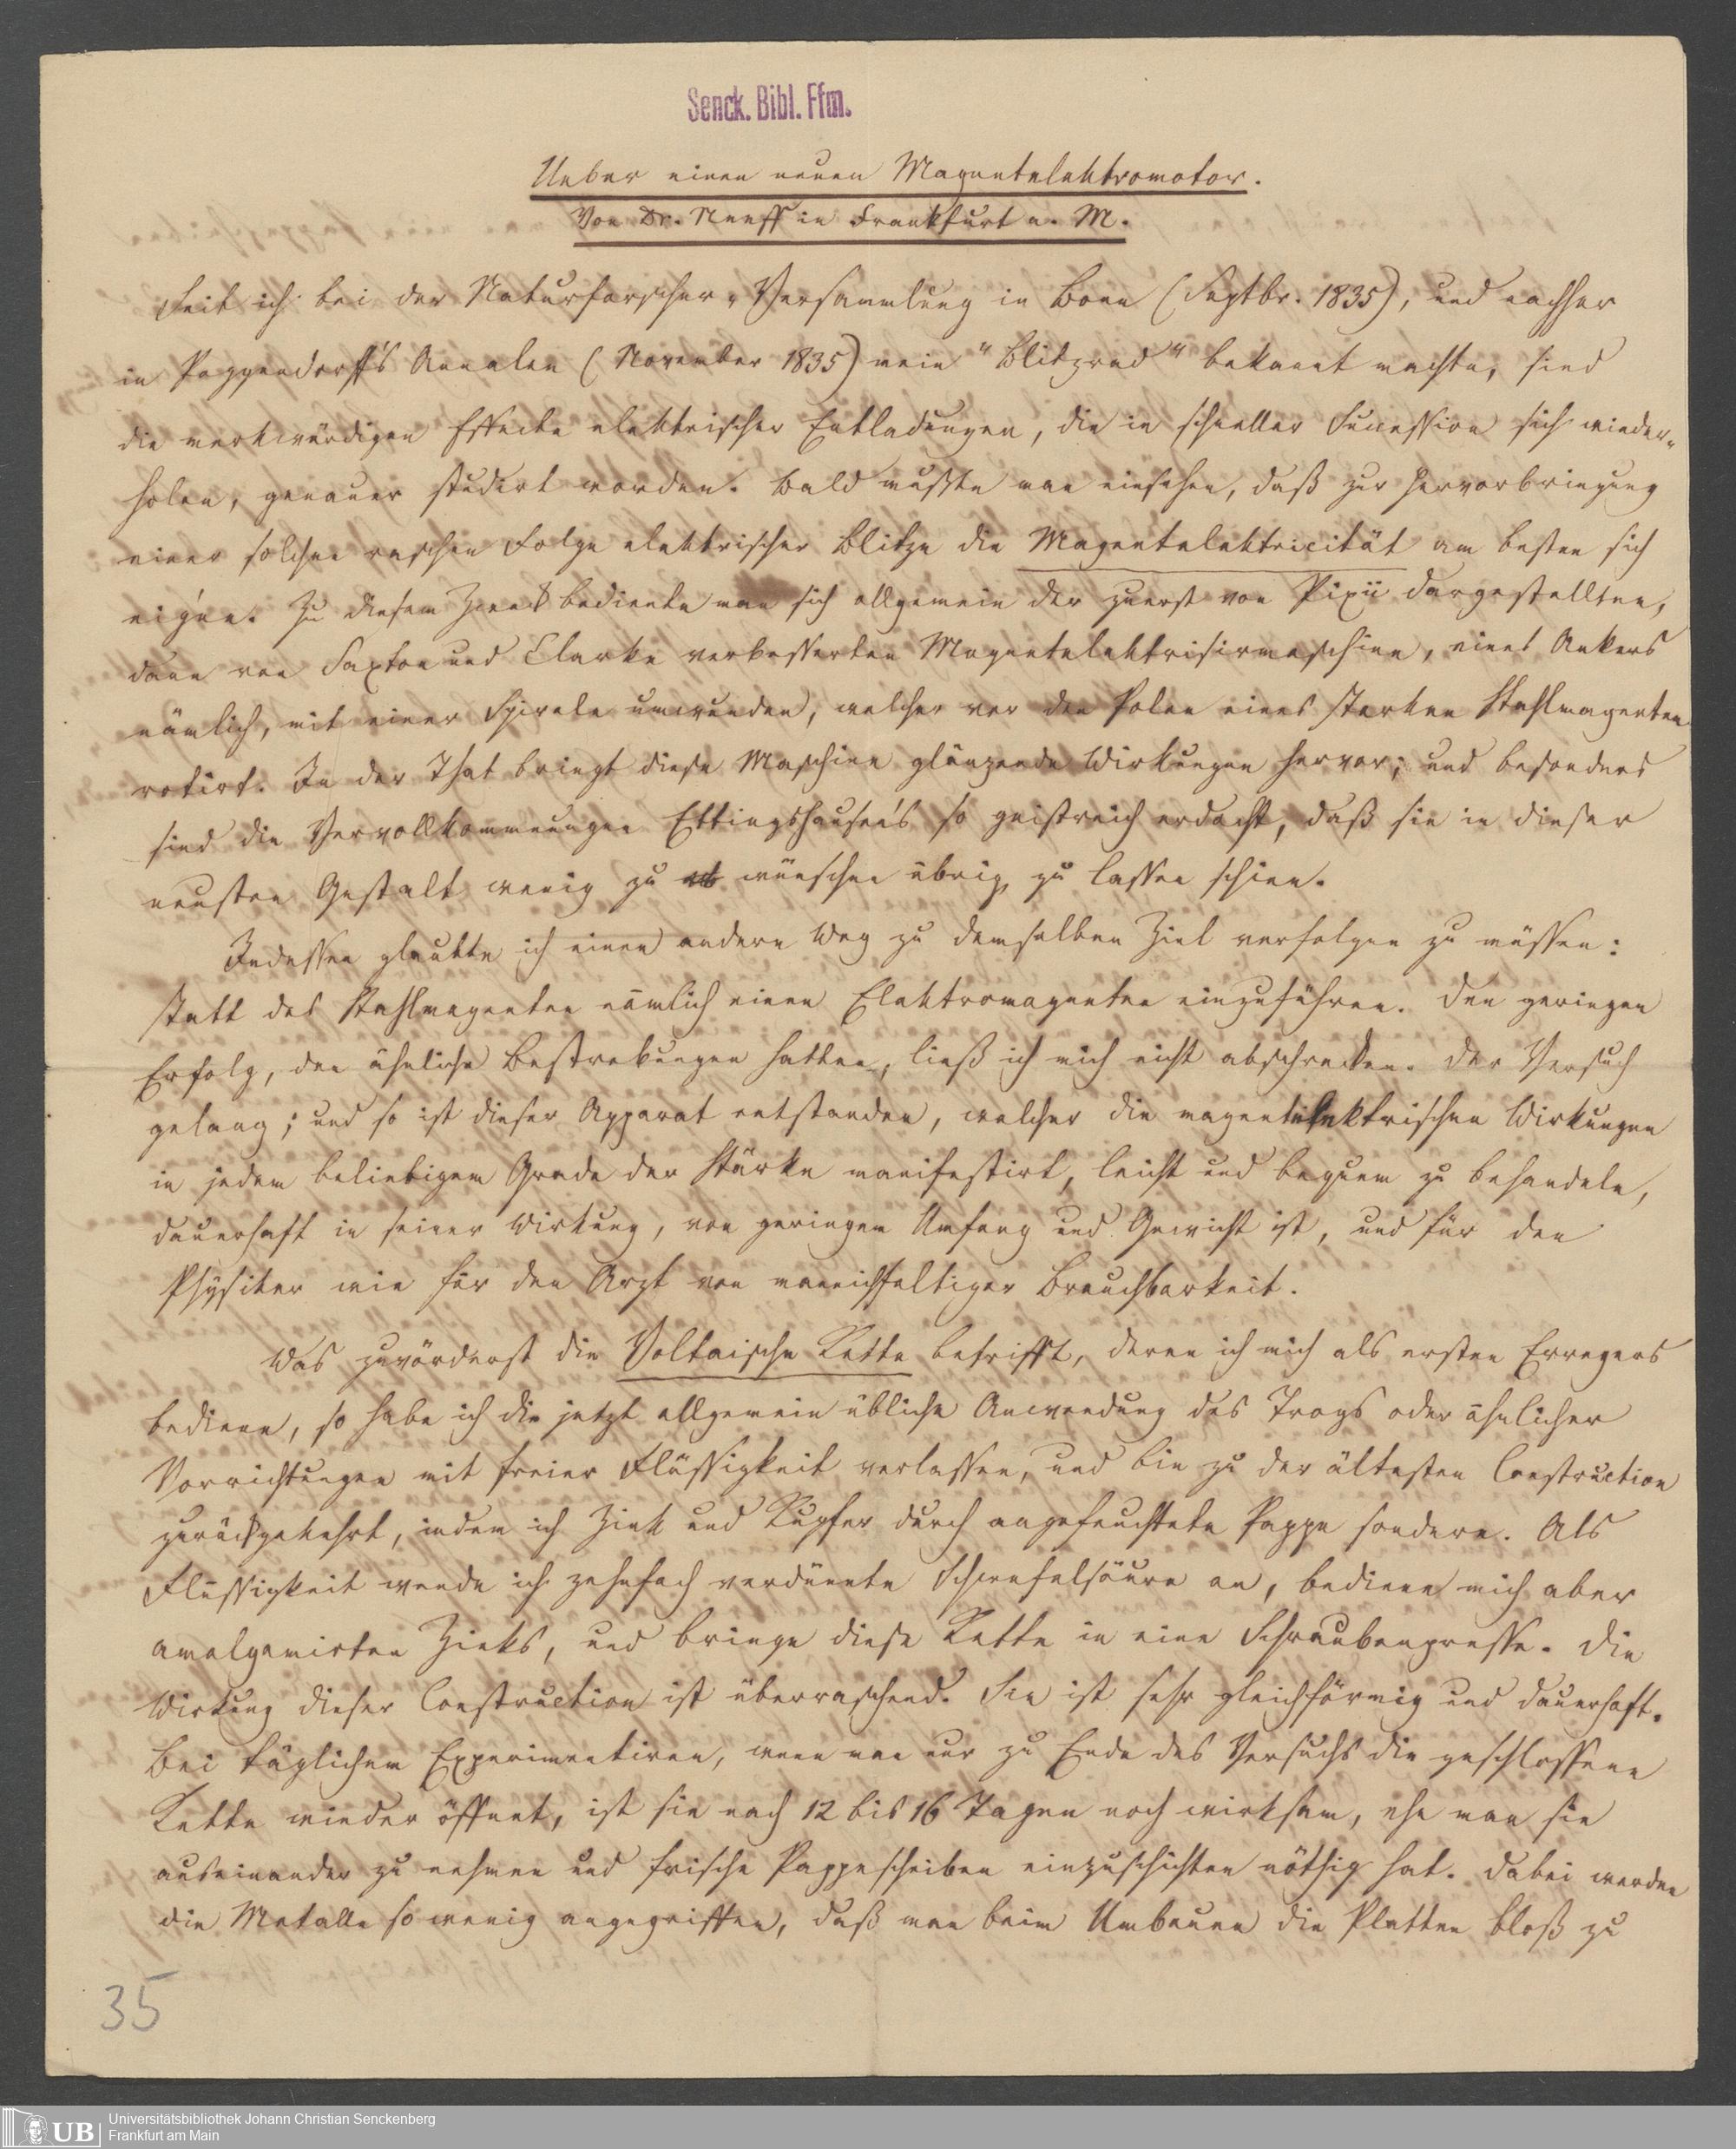 Senck. Bibl. Ffm.
Ueber einen neuen Magnetelektromotor.
Von Dr. Neeff in Frankfurt a. M.
Seit ich bei der Naturforscher-Versammlung in Bonn (Septbr. 1835), und nachher
in Poggendorff's Annalen (November 1835) mein "Blitzrad" bekannt machte, sind
die merkwürdigen Effecte elektrischer Entladungen, die in schneller Succession sich wieder-
holen, genauer studirt worden. Bald mußte man einsehen, daß zur Hervorbringung
einer solchen raschen Folge elektrischer Blitze die Magnetelektricität am besten sich
eigne. Zu diesem Zweck bediente man sich allgemein der zuerst von Pixii dargestellten,
dann von Saxton und Clarke verbesserten Magnetelektrisirmaschine, eines Ankers
nämlich, mit einer Spirale umwunden, welcher vor den Polen eines starken Stahlmagneten
rotirt. In der That bringt diese Maschine glänzende Wirkungen hervor; und besonders
sind die Vervollkommnungen Ettingshausen's so geistreich erdacht, daß sie in dieser
neusten Gestalt wenig zu wünschen übrig zu lassen schien.
Indessen glaubte ich einen andern Weg zu demselben Ziel verfolgen zu müssen:
statt des Stahlmagneten nämlich einen Elektromagneten einzuführen. Den geringen
Erfolg, den ähnliche Bestrebungen hatten, ließ ich mich nicht abschrecken. Der Versuch
gelang; und so ist dieser Apparat entstanden, welcher die magnetelektrischen Wirkungen
in jedem beliebigem Grade der Stärke manifestirt, leicht und bequem zu behandeln,
dauerhaft in seiner Wirkung, von geringen Umfang und Gewicht ist, und für den
Physiker wie für den Arzt von mannichfaltiger Brauchbarkeit.
Was zuvörderst die Voltaische Kette betrifft, deren ich mich als ersten Erregers
bediene, so habe ich die jetzt allgemein übliche Anwendung des Trogs oder ähnlicher
Vorrichtungen mit freier Flüssigkeit verlassen, und bin zu der ältesten Construction
zurückgekehrt, indem ich Zink und Kupfer durch angefeuchtete Pappe sondere. Als
Flüssigkeit wende ich zehnfach verdünnte Schwefelsäure an, bediene mich aber
amalgamirten Zinks, und bringe diese Kette in eine Schraubenpresse. Die
Wirkung dieser Construction ist überraschend. Sie ist sehr gleichförmig und dauerhaft.
Bei täglichem Experimentiren, wenn man nur zu Ende des Versuchs die geschlossene
Kette wieder öffnet, ist sie nach 12 bis 16 Tagen noch wirksam, ehe man sie
auseinander zu nehmen und frische Pappescheiben einzuschichten nöthig hat. Dabei werden
die Metalle so wenig angegriffen, daß man beim Umbauen die Platten bloß zu
35
UB
Universitätsbibliothek Johann Christian Senckenberg
Frankfurt am Main